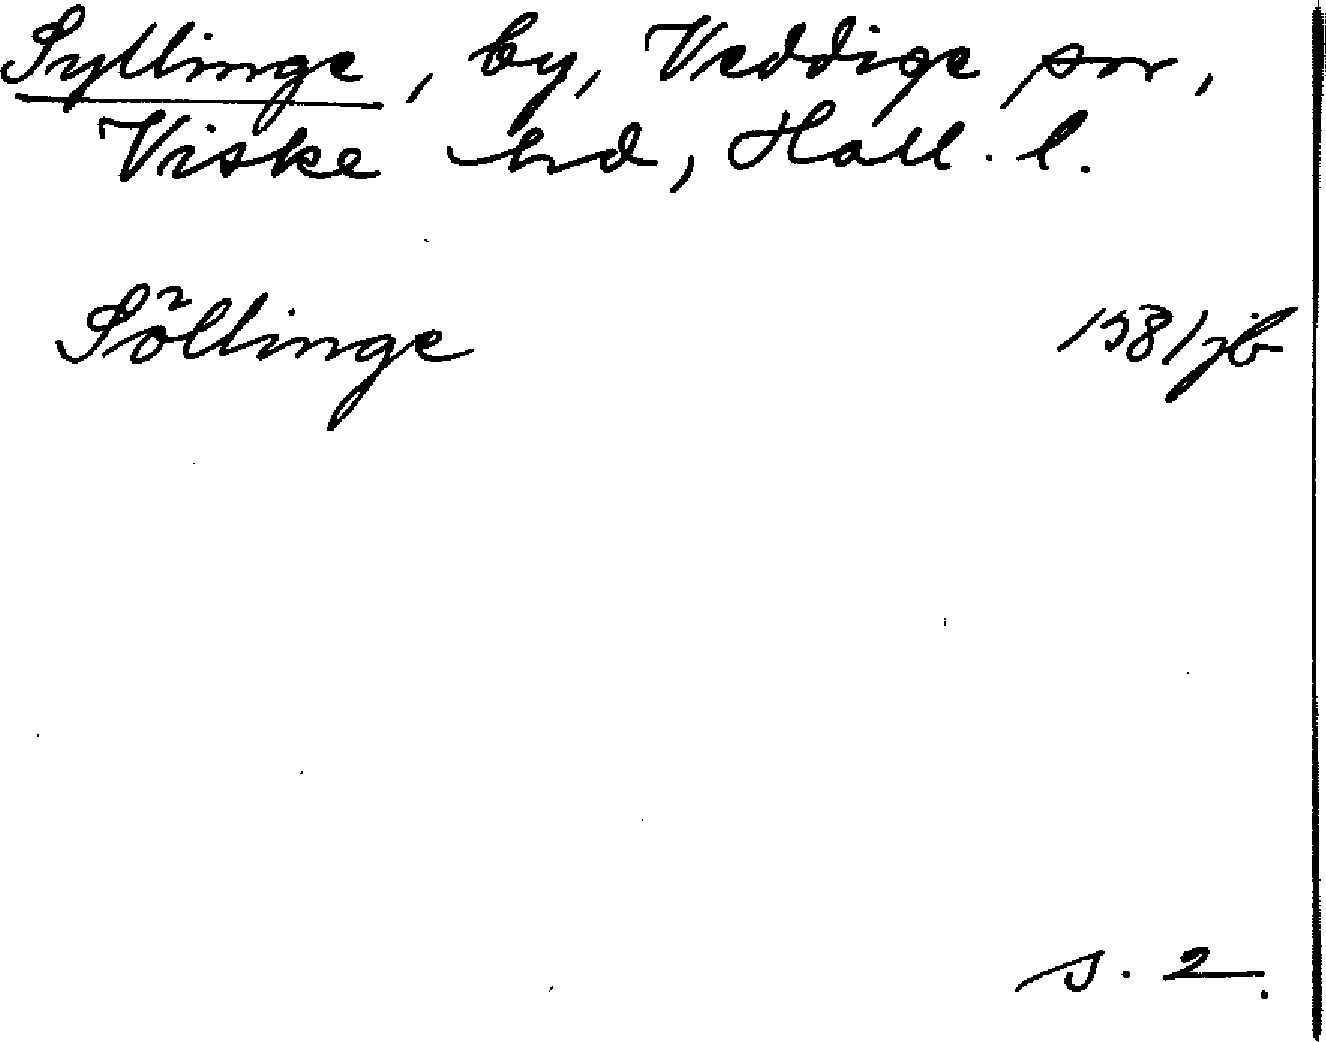 Syllinge, by, Veddige sn,
Viske hd, Hall. l.
Söllinge 1581 jb
s. 2.